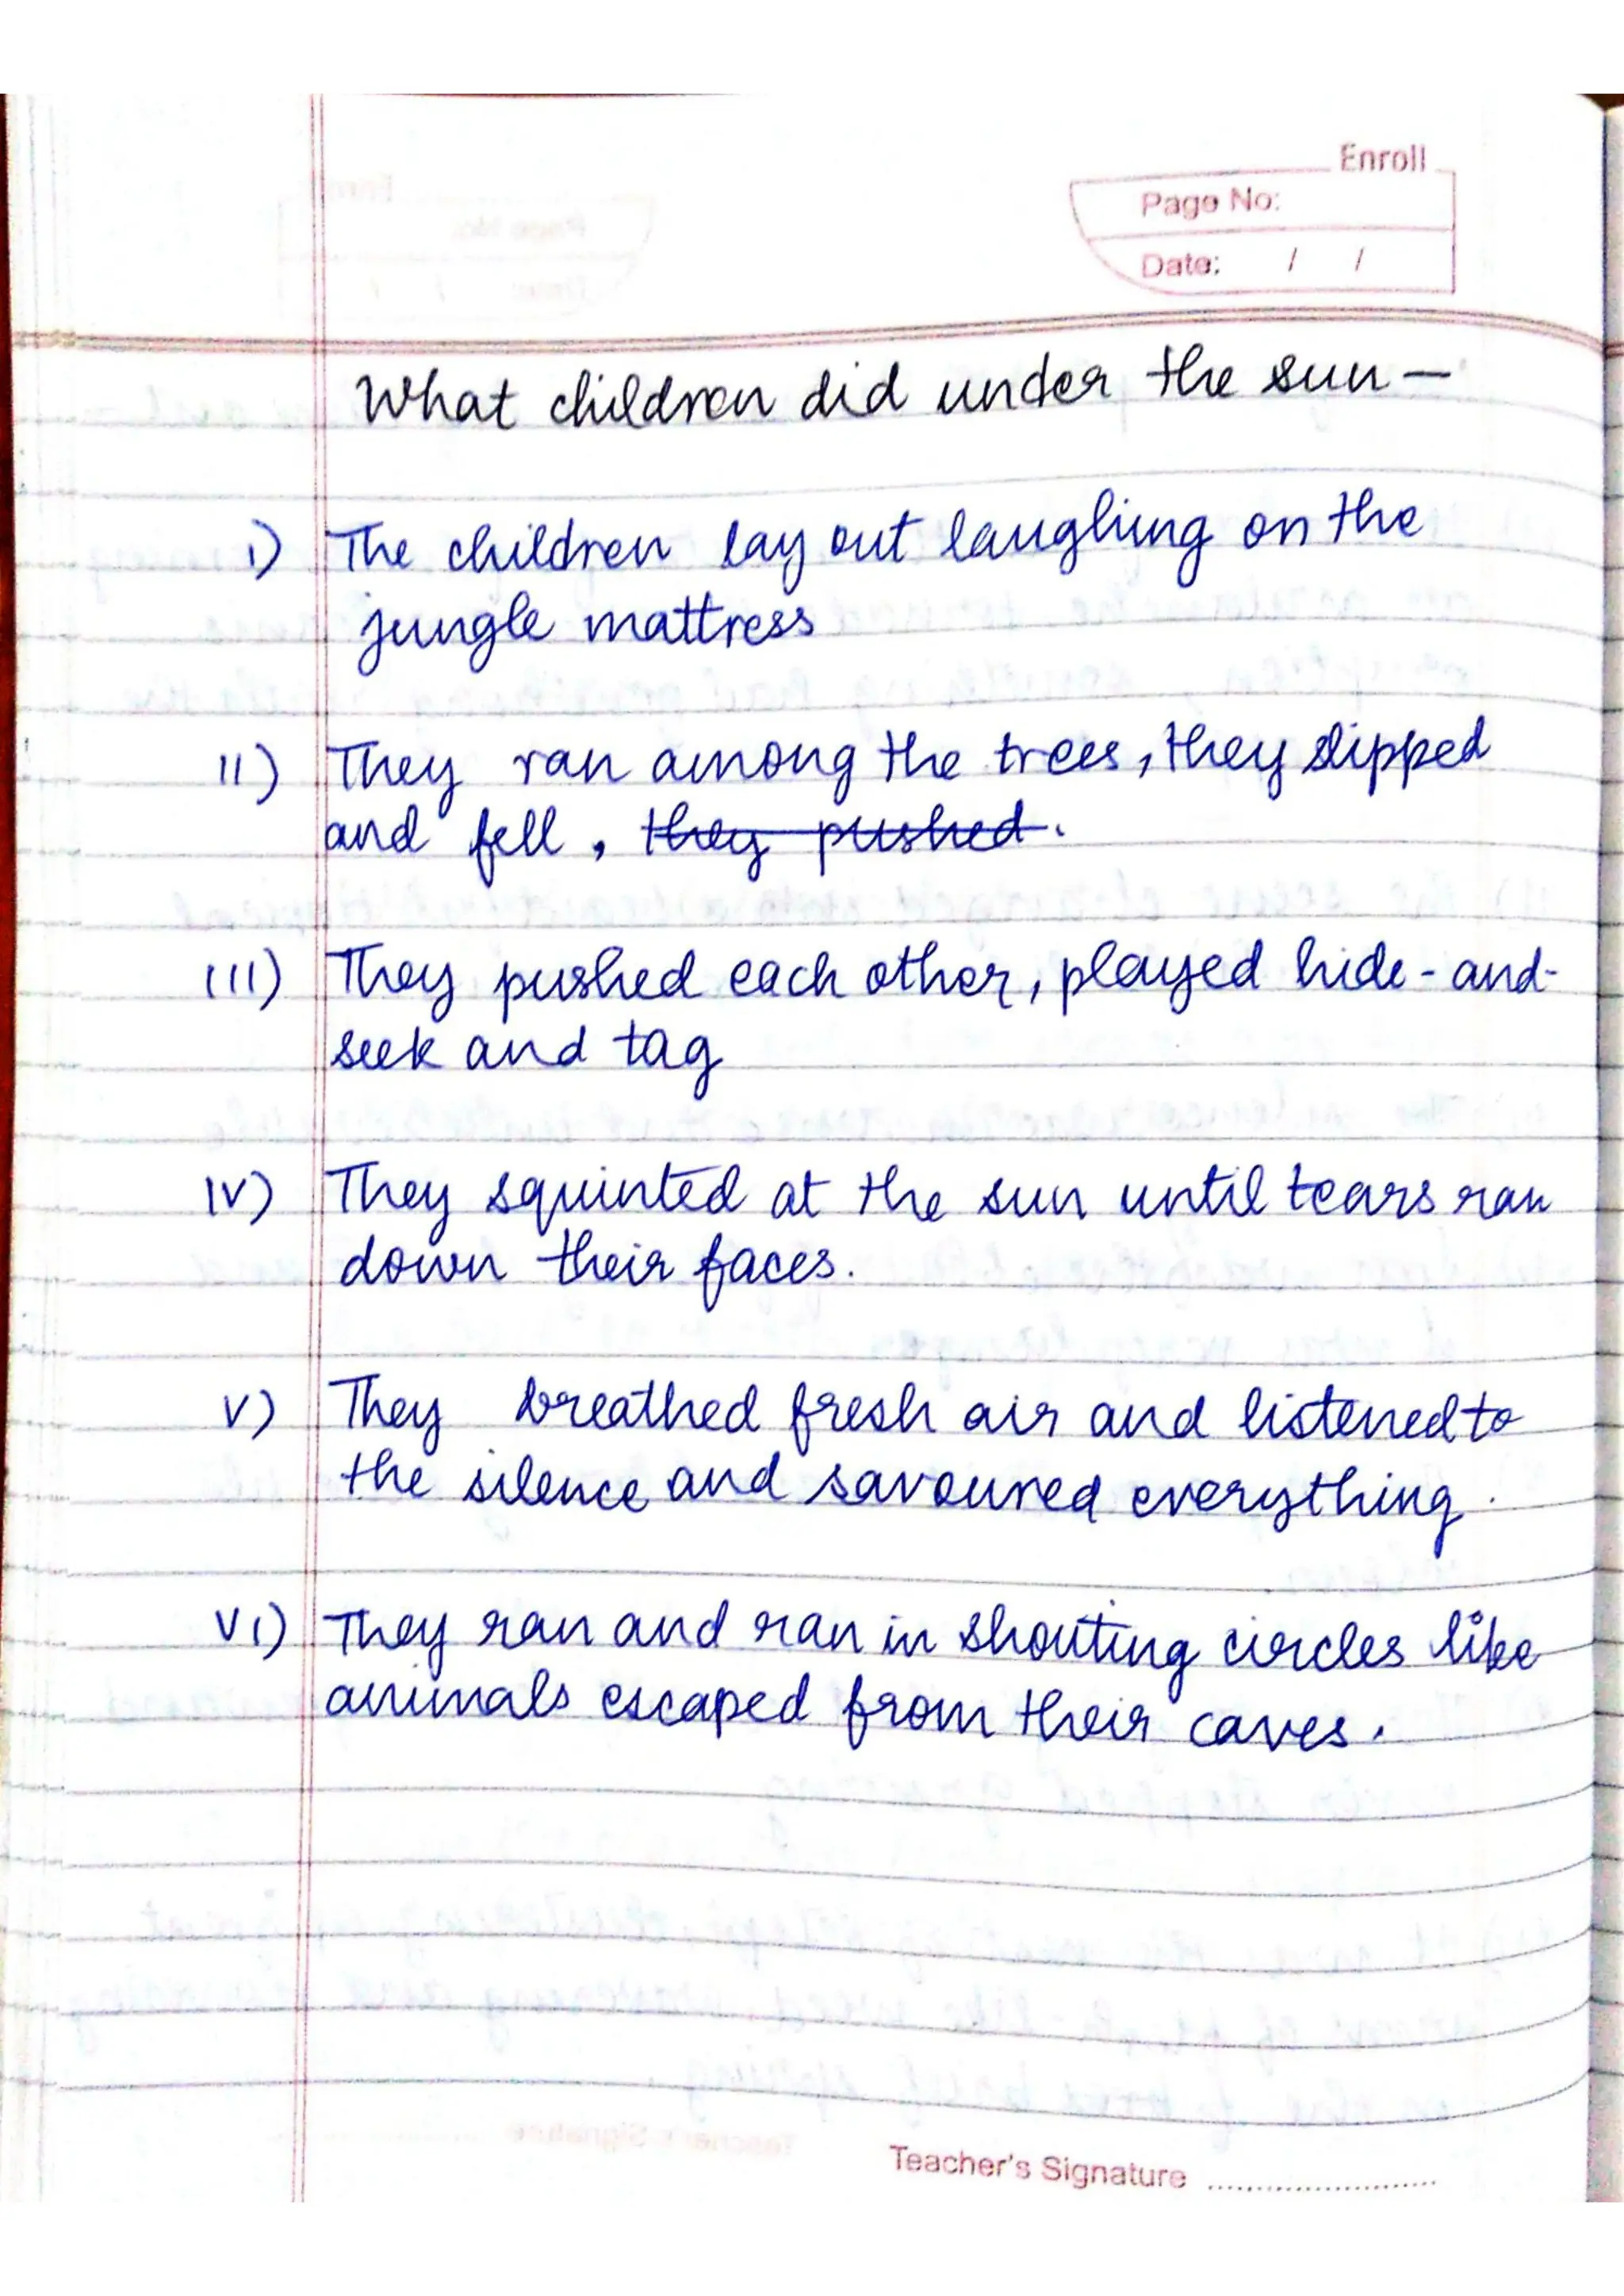 Enroll
Page No:
Date: / /
What children did under the sun —
i) The children lay out laughing on the
jungle mattress
ii) They ran among the trees, they slipped
and fell, they pushed.
iii) They pushed each other, played hide-and-
seek and tag
iv) They squinted at the sun until tears ran
down their faces.
v) They breathed fresh air and listened to
the silence and savoured everything.
vi) They ran and ran in shouting circles like
animals escaped from their caves.
Teacher's Signature ........................